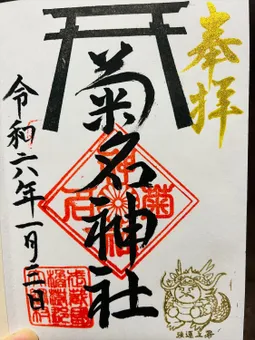 奉拝
菊名神社
令和六年一月二日